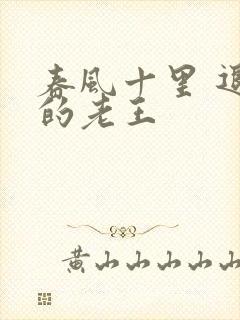 春風十里
的老王
黄山山山山